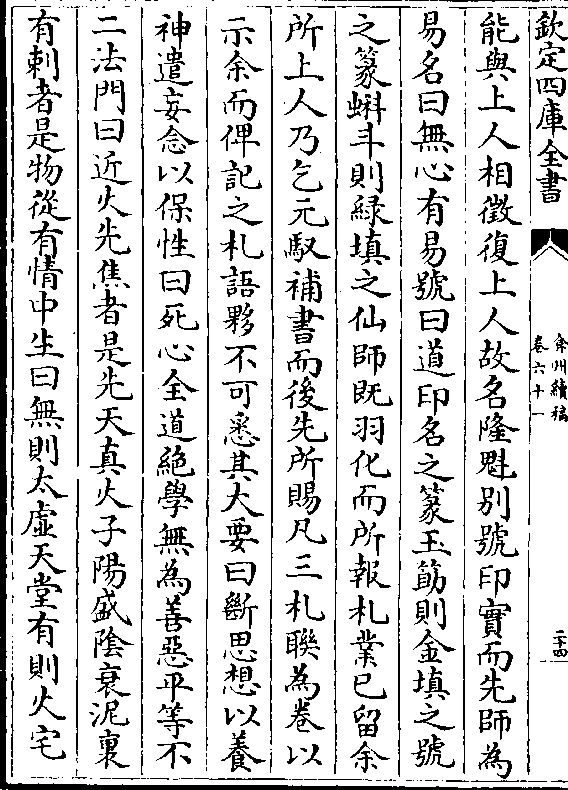 欽定四庫全書
弇州續稿
卷六十一
二十四
能與上人相徵復上人故名隆魁别號印實而先師為
易名曰無心有易號曰道印名之篆玉筯則金填之號
之篆蝌斗則緑填之仙師既羽化而所報札業已留余
所上人乃乞元馭補書而後先所賜凡三札聯為卷以
示余而俾記之札語夥不可悉其大要曰斷思想以養
神遣妄念以保性曰死心全道絶學無為善惡平等不
二法門曰近火先焦者是先天真火子陽盛陰衰泥裏
有刺者是物從有情中生曰無則太虚天堂有則火宅